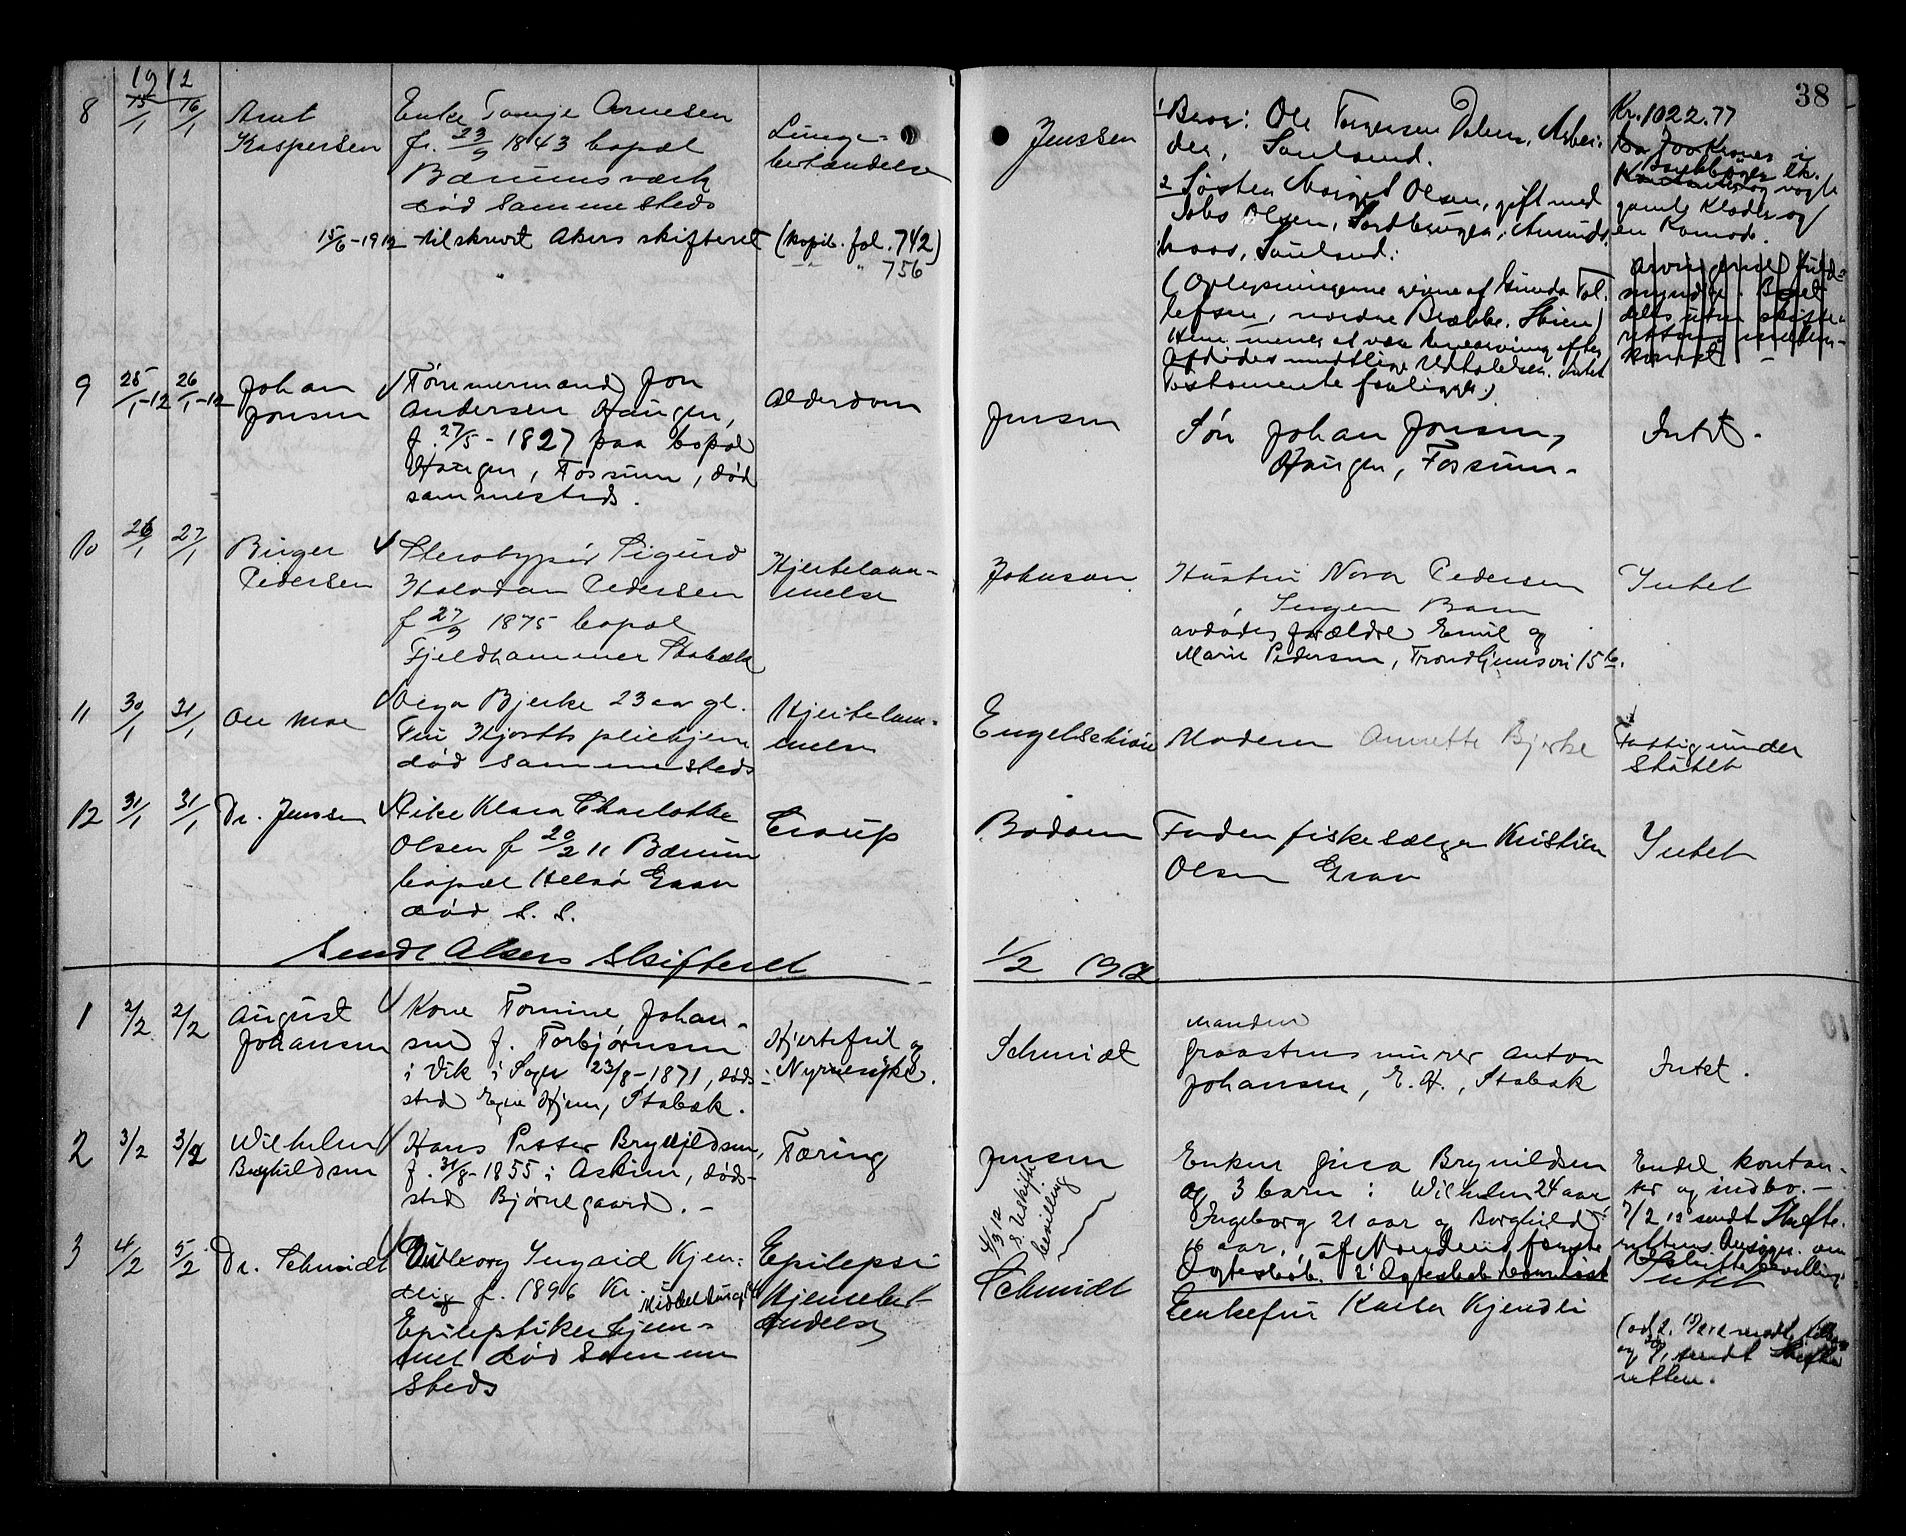 38
1912
8
15/1
16/1
Arnt
Kaspersen
Enke Tomje Arnesen
f. 23/9 1843 bopæl
Bærums værk
død sammesteds
Lunge-
betændelse
15/6-1912 tilskrevet Akers skifteret (kopib. fol. 742)
" 756
Jenssen
1 Bror: Ole Torgersen Dalen, Arbei-
der, Sauland.
2 Søster Margit Olsen, gift med
Jobs Olsen, Jordbruger, Amunds-
haas, Sauland.
(Oplysningerne givne af Gunda Tol-
lefsen, nordre Brække, Skien)
Hun mener at være enearving efter
Afdødes mundtlige Udtalelser. Intet
Testamente foreligger.)
Kr. 1022.77
Kroner i
Bankbøger
Kontanter og nogle
gamle Klæder og
en Komode.
Arvingerne fuld-
myndige. Boet
deles uden skifte-
rettens mellem-
komst
9
25/1-12
26/1-12
Johan
Jonsen
Tømmermand Jon
Andersen Haugen,
f. 27/5-1827 paa bopæl
Haugen, Fossum, død
sammesteds.
Alderdom
Jensen
Søn Johan Jonsen,
Haugen, Fossum.
Intet.
10
26/1
27/1
Birger
Pedersen
Sterotypør Sigurd
Halvdan Pedersen
f 27/9 1875 bopæl
Fjeldhammer Stabæk
Hjertelam-
melse
Johnson
Hustru Nora Pedersen
, Ingen Barn
avdødes forældre Emil og
Marie Pedersen, Trondhjemsvei 15 b.
Intet
11
30/1
31/1
Ole Moe
Olga Bjerke 23 aar gl.
Fru Hjorths pleiehjem
død sammesteds
Hjertelam-
melse
Engelschiøn
Moderen Annette Bjerke
Fattigunder
støttet
12
31/1
31/1
Dr. Jenssen
Pike Klara Charlotte
Olsen f 20/2 11 Bærum
bopæl Helsø Grav
død s. s.
Croup
Bødom
Faderen fiskesælger Kristian
Olsen Grav
Intet
Sendt Akers Skifteret
1/2 1912
1
2/2
2/2
August
Johansen
Kone Tomine Johan-
sen f. Torbjørnsen
i Vik i Sogn 23/8-1871, døds-
sted Egne Hjem, Stabæk.
Hjertefeil og
Nyresyke.
Schmidt
Manden
Graastensmurer Anton
Johansen, E. H., Stabæk
Intet.
2
3/2
3/2
Wilhelm
Brynildsen
Hans Petter Brynildsen,
f. 31/8-1855 i Askim, døds-
sted Bjørnegaard.
Tæring
Jensen
4/3 12
s. Uskifte-
bevilling
Enken Gina Brynildsen
og 3 barn: Wilhelm 24 aar
Ingeborg 21 aar og Borghild
16 aar, af Mandens første
Ægteskab. 2' Ægteskab barnløst
Endel kontan-
ter og indbo.
7/2 12 sendt Skifte-
retten Ansøgn. om
Uskiftebevilling
3
4/2
5/2
Dr. Schmidt
Valborg Ingrid Kjen-
dlig f. 1896 Kr. Middelthunsgt
Epileptikerhjem-
met død samme
steds
Epilepsi
Hjernebet-
ændelse
Schmidt
Enkefru Karla Kjendli
Intet
sendt Skifte-
retten.